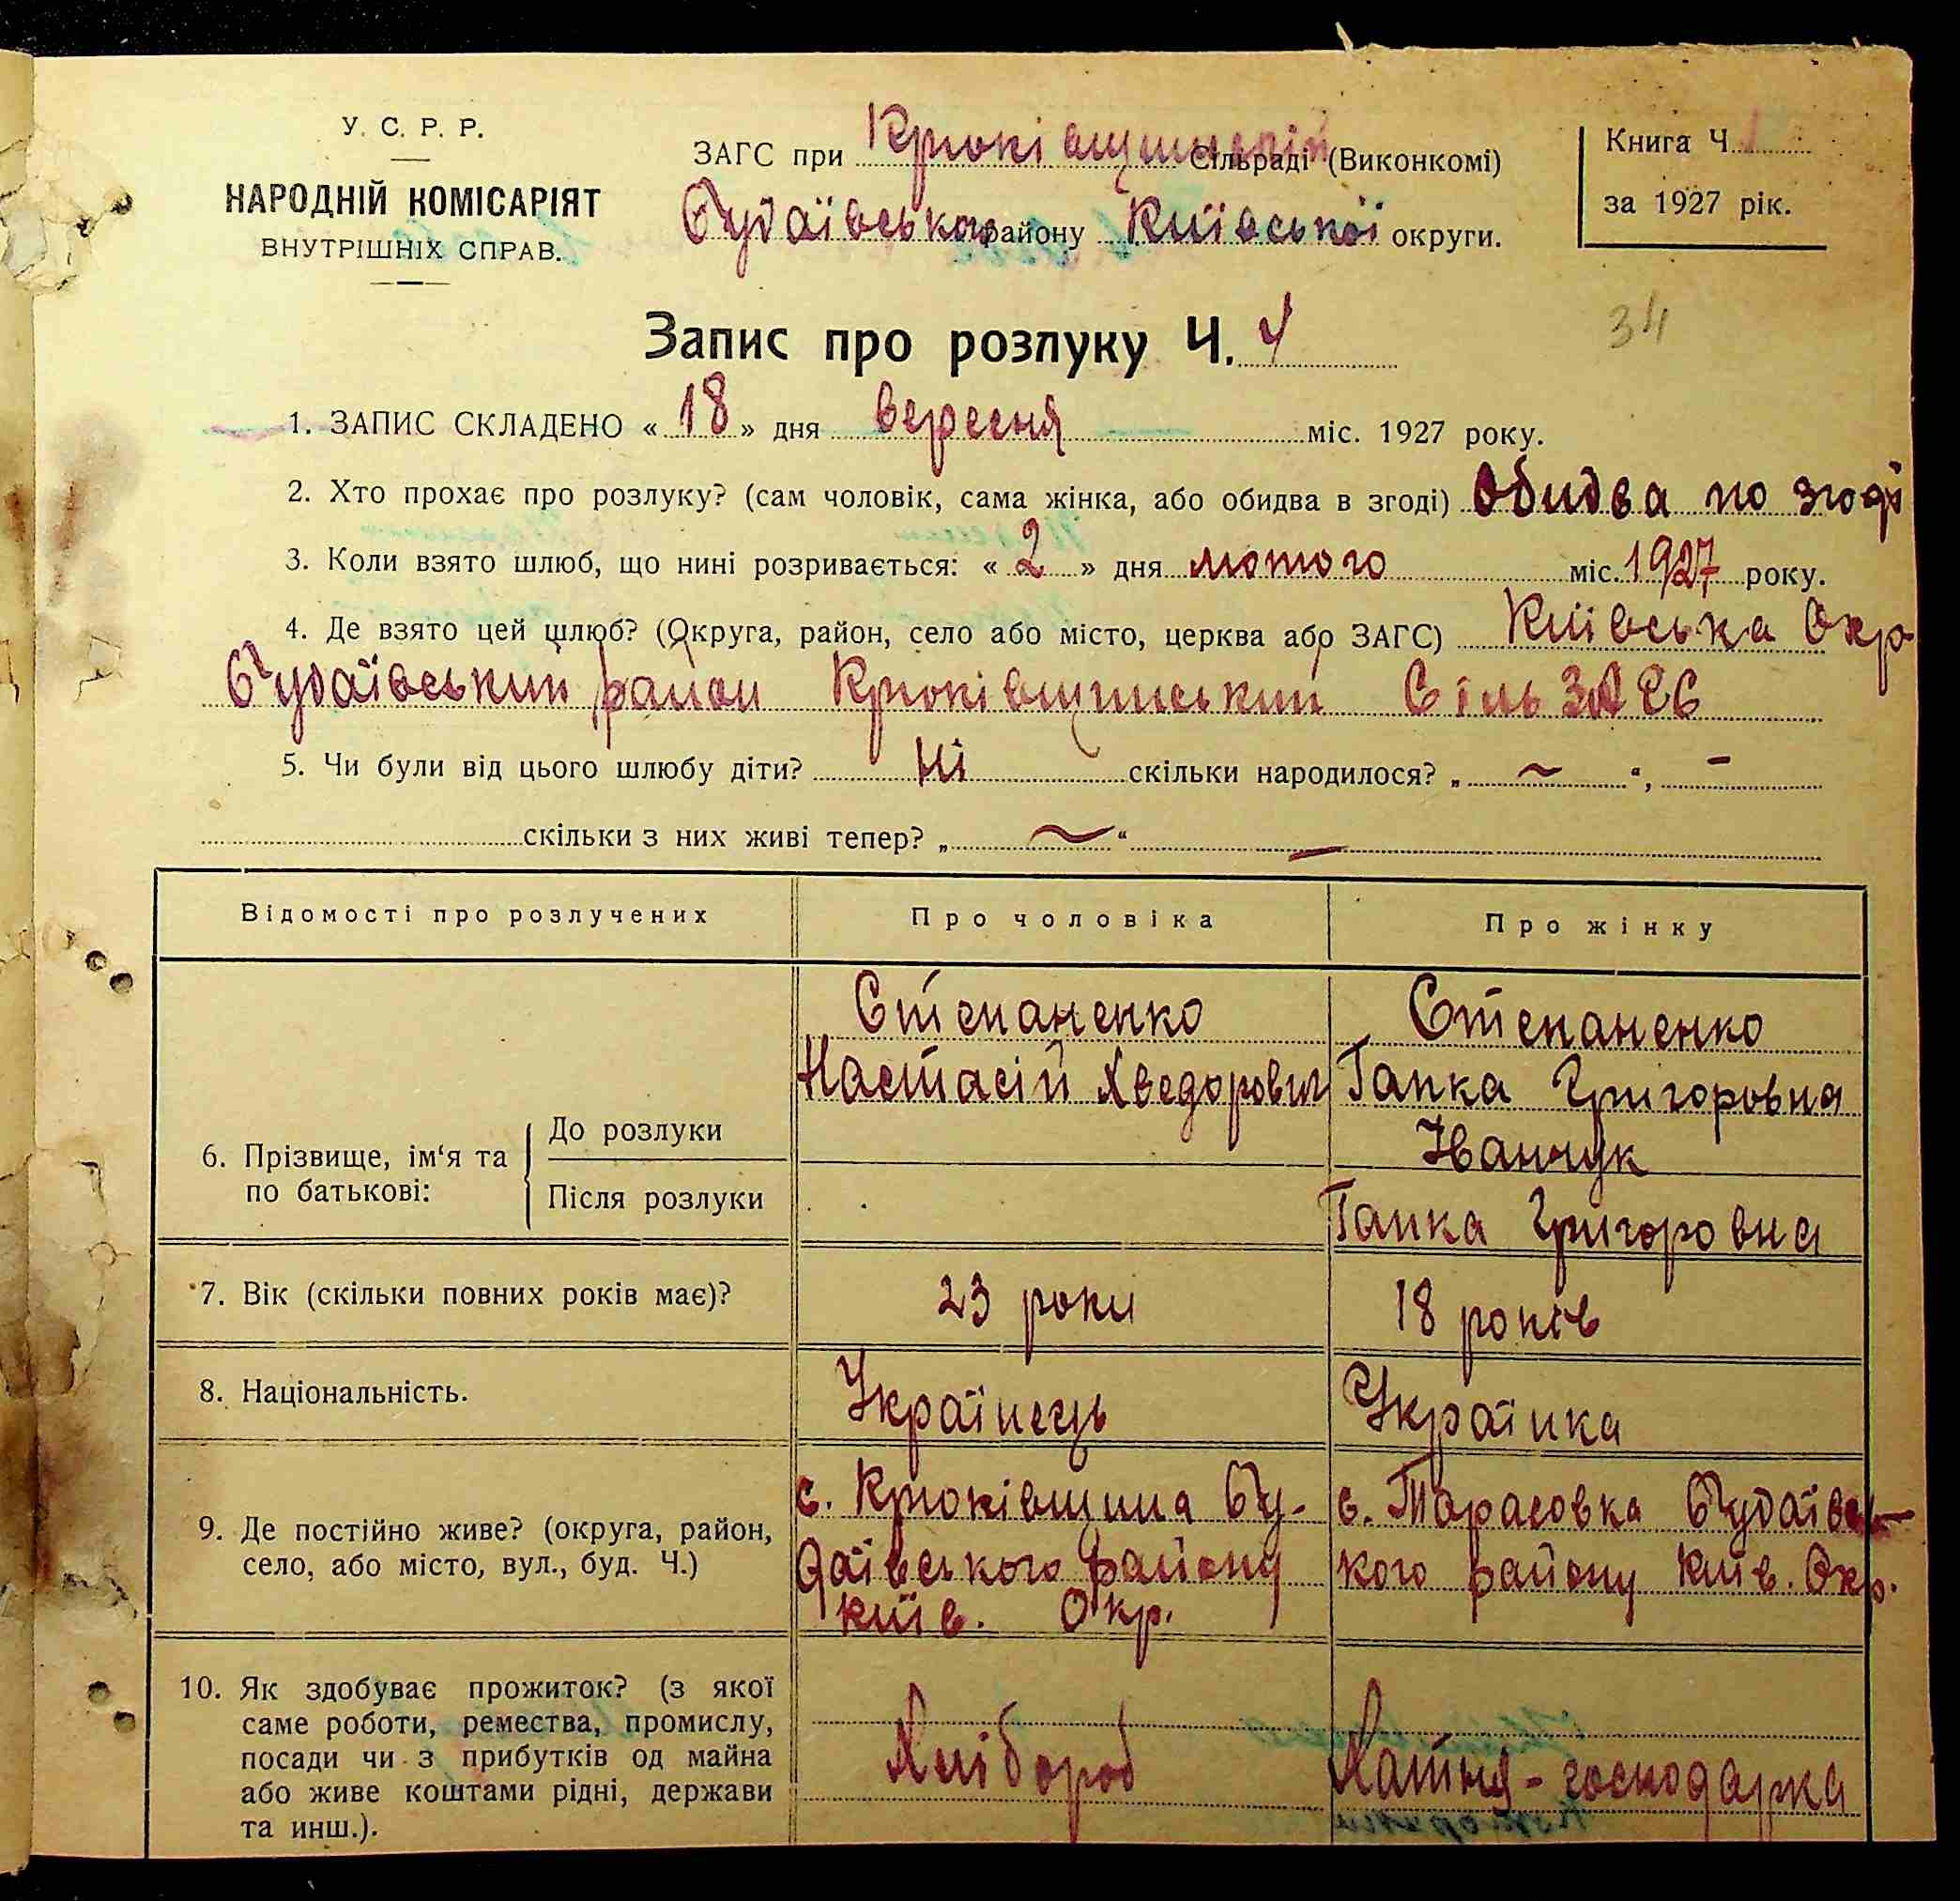 У. С. Р. Р.
НАРОДНІЙ КОМІСАРІЯТ
ВНУТРІШНІХ СПРАВ.
ЗАГС при Крюківщинській Сільраді (Виконкомі)
Будаївського району Київської округи.
Книга Ч. 1
за 1927 рік.
34
Запис про розлуку Ч. 4
1. ЗАПИС СКЛАДЕНО « 18 » дня вересня міс. 1927 року.
2. Хто прохає про розлуку? (сам чоловік, сама жінка, або обидва в згоді) Обидва по згоді
3. Коли взято шлюб, що нині розривається: « 2 » дня лютого міс. 1927 року.
4. Де взято цей шлюб? (Округа, район, село або місто, церква або ЗАГС) Київська Окр
Будаївський район Крюківщинський Сіль ЗАГС
5. Чи були від цього шлюбу діти? Ні скільки народилося? „ ~ “, –
скільки з них живі тепер? „ ~ “ –
Відомості про розлучених
Про чоловіка
Про жінку
6. Прізвище, ім'я та
по батькові:
До розлуки
Після розлуки
Степаненко
Настасій Хведорович
Степаненко
Ганка Григоровна
Іванчук
Ганка Григоровна
7. Вік (скільки повних років має)?
23 роки
18 років
8. Національність.
Українець
Українка
9. Де постійно живе? (округа, район,
село, або місто, вул., буд. Ч.)
с. Крюківщина Бу-
даївського району
Київ. Окр.
с. Тарасовка Будаївсь-
кого району Київ. Окр.
10. Як здобуває прожиток? (з якої
саме роботи, ремества, промислу,
посади чи з прибутків од майна
або живе коштами рідні, держави
та инш.).
Хлібороб
Хатня-господарка